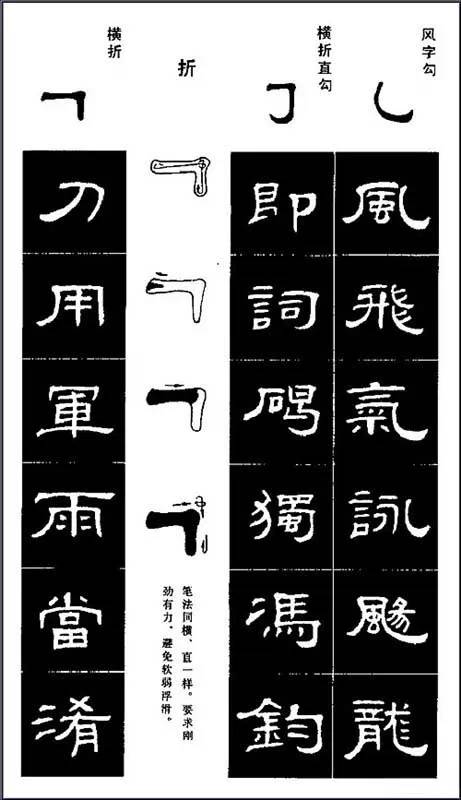 风字勾
風飛氣詠颺龍
横折直勾
即詞碣獨馮鈞
折
笔法同横、直一样。要求刚
劲有力，避免软弱浮滑。
横折
刀用軍雨當淆